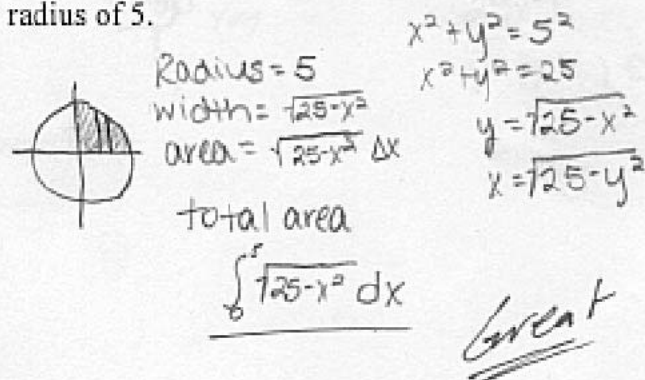 radius of 5.
Radius = 5
width = √25-x²
area = √25-x² Δx
total area
∫₀⁵ √25-x² dx
x² + y² = 5²
x² + y² = 25
y = √25-x²
x = √25-y²
Great